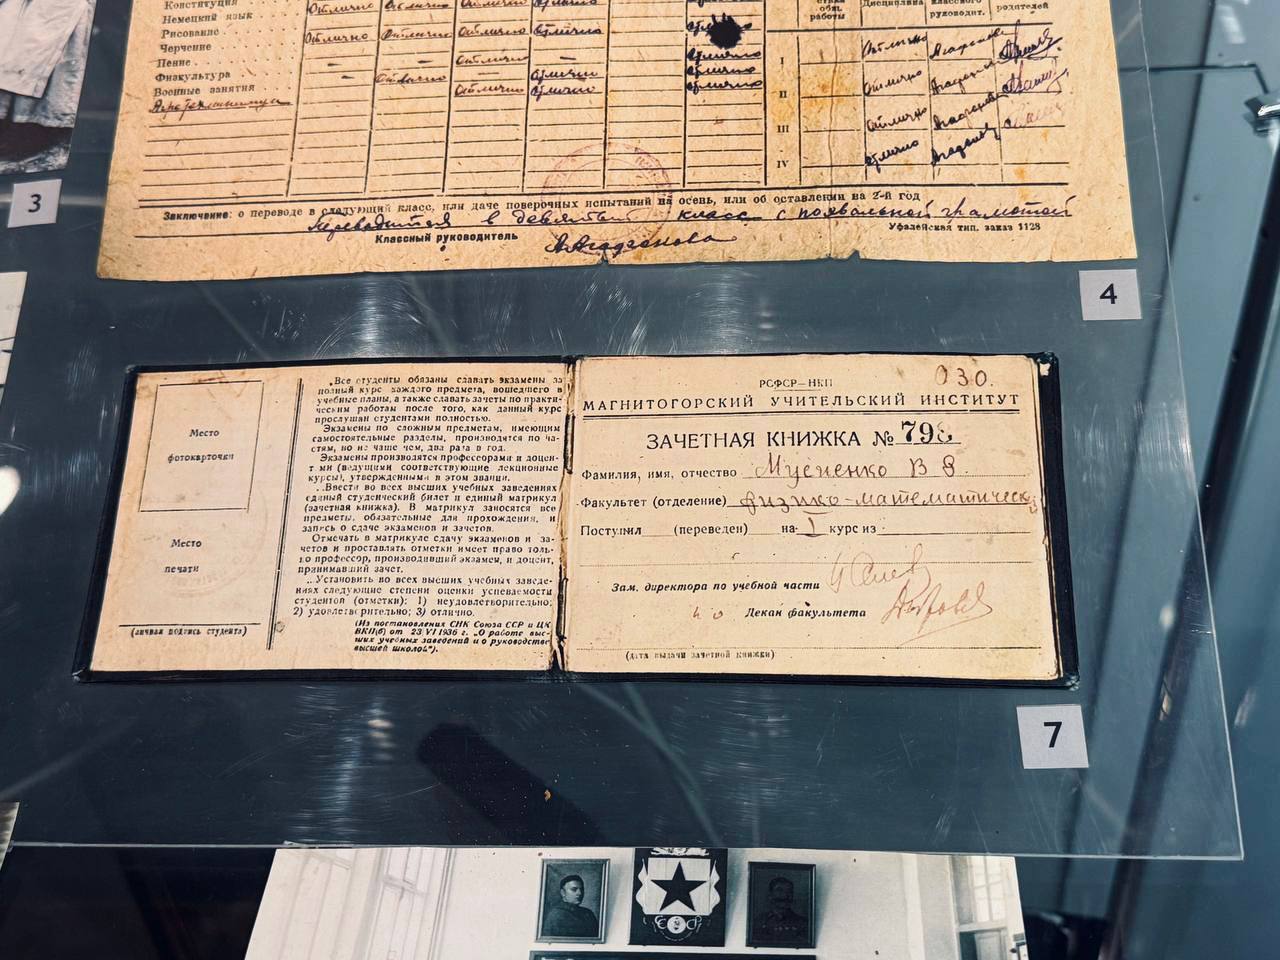 Конституция отлично отлично отлично отлично отлично
Немецкий язык
Рисование отлично отлично отлично отлично
Черчение
Пение — — отлично — отлично
Физкультура отлично — отлично отлично
Военные занятия отлично отлично отлично
обш. работы
Дисциплина
классного руководит.
родителей
I отлично
II отлично
III отлично
IV отлично
Заключение: о переводе в следующий класс, или даче поверочных испытаний на осень, или об оставлении на 2-й год
переводится в девятый класс с похвальной грамотой
Классный руководитель
Уфалейская тип. заказ 1128
3
4
Место
фотокарточки
Место
печати
(личная подпись студента)
„Все студенты обязаны сдавать экзамены за
полный курс каждого предмета, вошедшего в
учебные планы, а также сдавать зачеты по практи-
ческим работам после того, как данный курс
прослушан студентами полностью.
Экзамены по сложным предметам, имеющим
самостоятельные разделы, производятся по ча-
стям, но не чаще чем, два раза в год.
Экзамены производятся профессорами и доцен-
тами (ведущими соответствующие лекционные
курсы), утвержденными в этом звании.
„Ввести во всех высших учебных заведениях
единый студенческий билет и единый матрикул
(зачетная книжка). В матрикул заносятся все
предметы, обязательные для прохождения, и
запись о сдаче экзаменов и зачетов.
Отмечать в матрикуле сдачу экзаменов и за-
четов и проставлять отметки имеет право толь-
ко профессор, производивший экзамен, и доцент,
принимавший зачет.
„Установить во всех высших учебных заведе-
ниях следующие степени оценки успеваемости
студентов (отметки): 1) неудовлетворительно;
2) удовлетворительно; 3) отлично.
(Из постановления СНК Союза ССР и ЦК
ВКП(б) от 23 VI 1936 г. „О работе выс-
ших учебных заведений и о руководстве
высшей школой“).
РСФСР—НКП
030.
МАГНИТОГОРСКИЙ УЧИТЕЛЬСКИЙ ИНСТИТУТ
ЗАЧЕТНАЯ КНИЖКА № 798
Фамилия, имя, отчество Мусиенко В
Факультет (отделение) физико-математическ
Поступил (переведен) на I курс из
Зам. директора по учебной части
Декан факультета
(дата выдачи зачетной книжки)
7
СССР